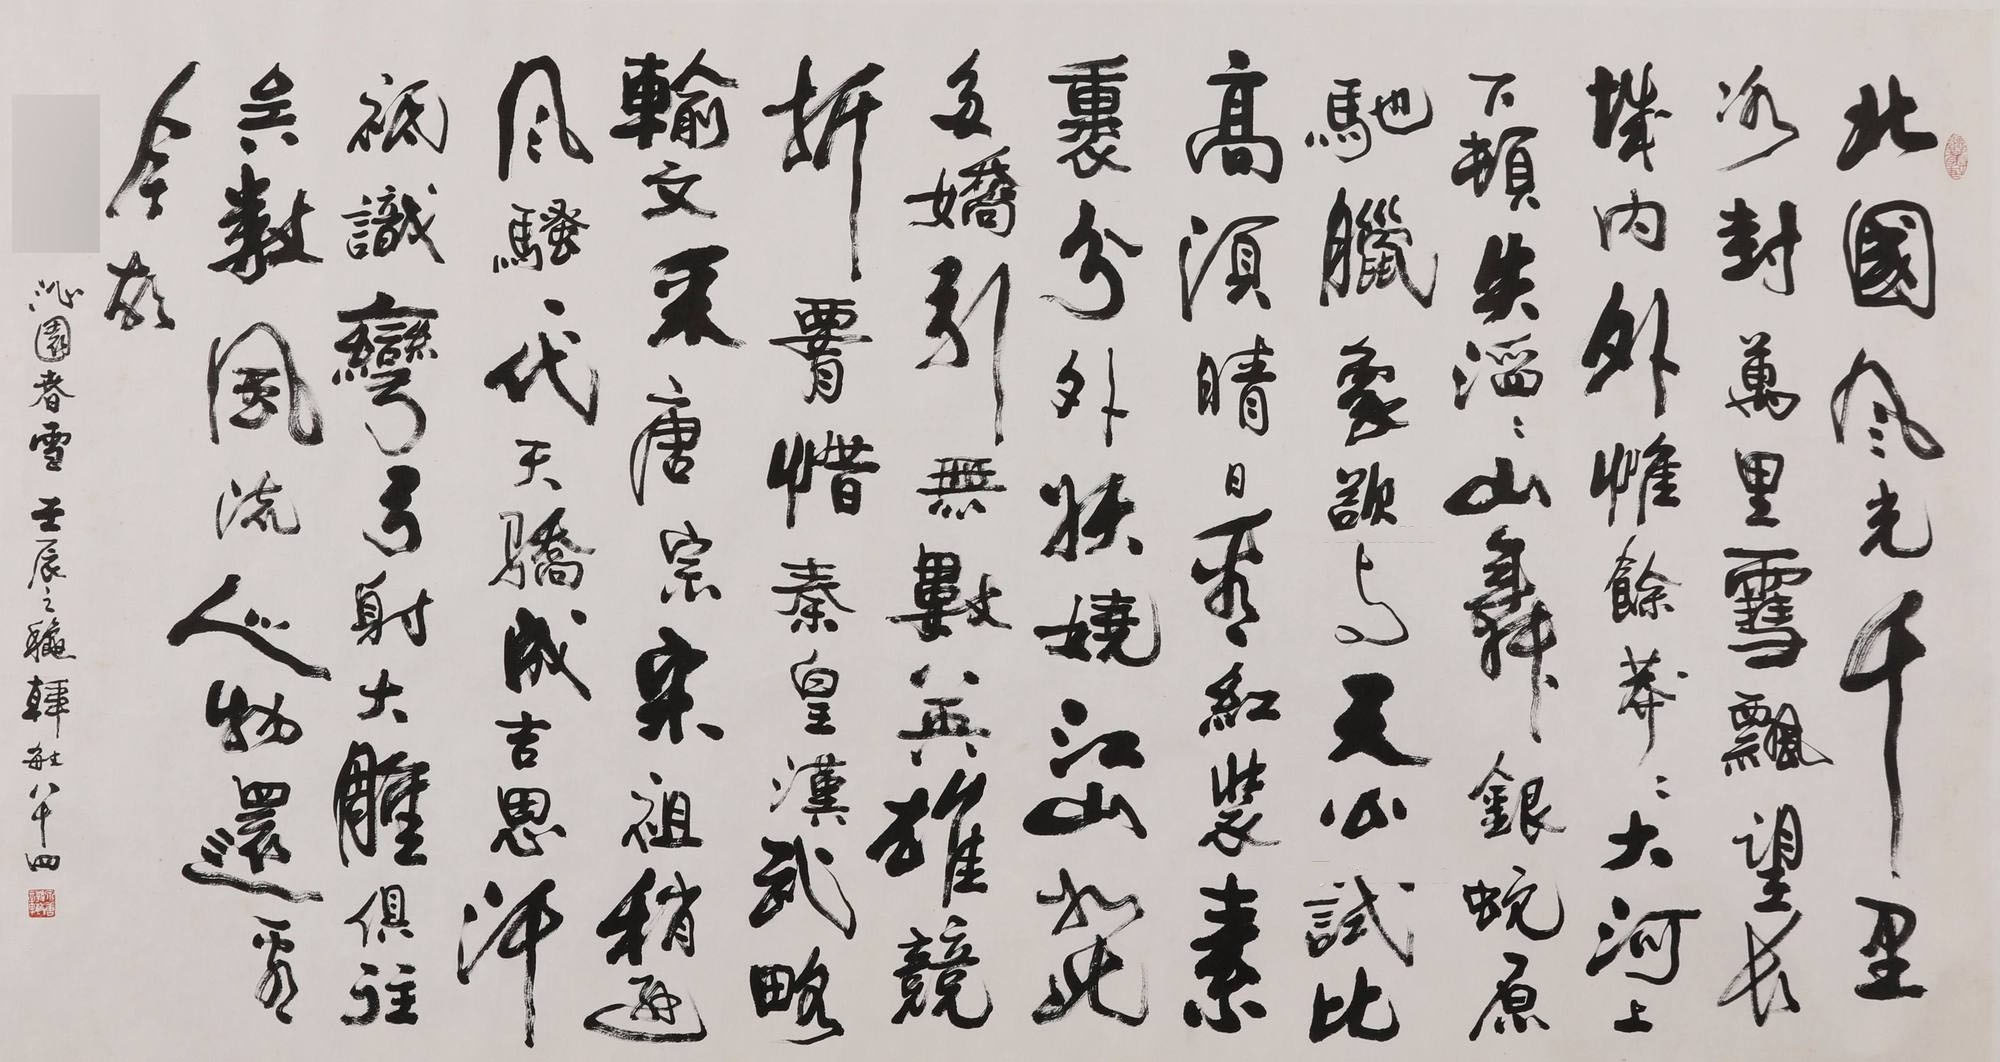 北國风光千里
冰封萬里雪飄望长
城内外惟餘莽〻大河上
下頓失滔〻山舞銀蛇原
馳臘象欲与天公試比
高須晴日看紅裝素
裹分外妖嬈江山如此
多嬌引無數英雄競
折腰惜秦皇漢武略
輸文采唐宗宋祖稍遜
风騷一代天驕成吉思汗
祇識彎弓射大雕俱往
矣數風流人物還看
今朝
沁園春雪 壬辰之穐 韓敏八十四